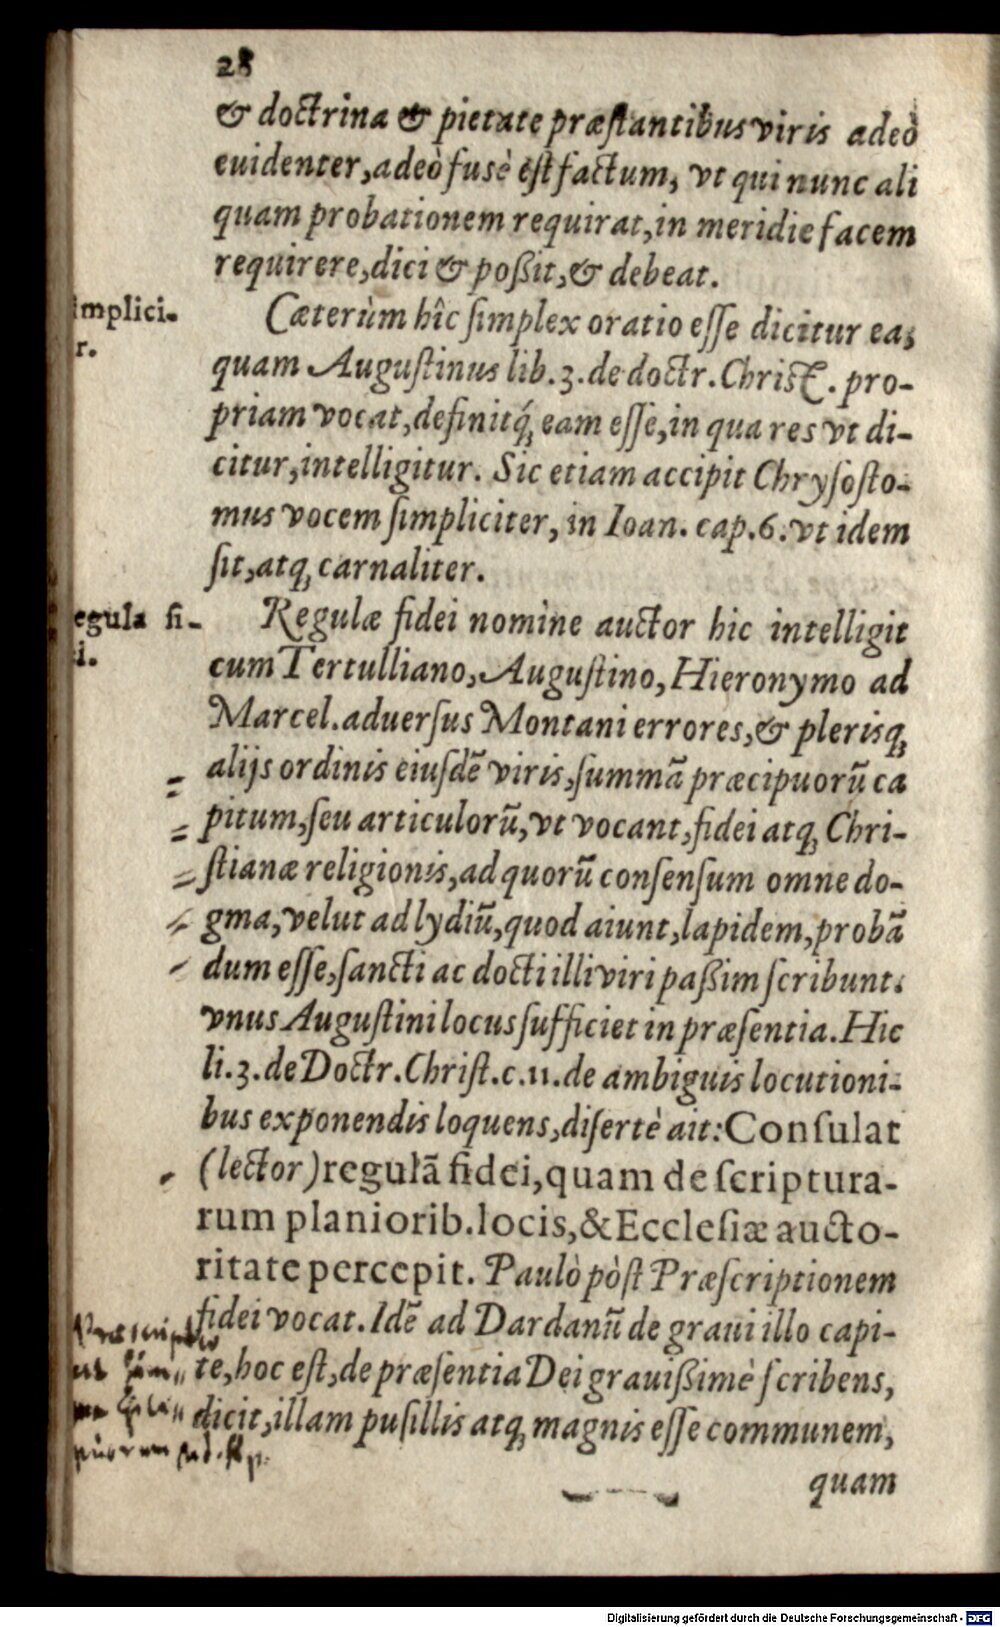 28
& doctrina & pietate præſtantibus viris adeò
euidenter, adeò fusè eſt factum, vt qui nunc ali
quam probationem requirat, in meridie facem
requirere, dici & poßit, & debeat.
implici-
r.
Cæterùm hîc ſimplex oratio eſſe dicitur ea,
quam Auguſtinus lib. 3. de doctr. Chriſt. pro-
priam vocat, definitq́ue eam eſſe, in qua res vt di-
citur, intelligitur. Sic etiam accipit Chryſoſto-
mus vocem ſimpliciter, in Ioan. cap. 6. vt idem
ſit, atq; carnaliter.
egula fi-
i.
Regulæ fidei nomine auctor hic intelligit
cum Tertulliano, Auguſtino, Hieronymo ad
Marcel. aduerſus Montani errores, & plerisq;
alijs ordinis eiuſdē viris, ſummā præcipuorū ca
pitum, ſeu articulorū, vt vocant, fidei atq; Chri-
ſtianæ religionis, ad quorū conſenſum omne do-
gma, velut ad lydiū, quod aiunt, lapidem, probā
dum eſſe, ſancti ac docti illi viri paßim ſcribunt.
vnus Auguſtini locus ſufficiet in præſentia. Hic
li. 3. de Doctr. Chriſt. c. 11. de ambiguis locutioni-
bus exponendis loquens, diſertè ait: Conſulat
(lector) regulā fidei, quam de ſcriptura-
rum planiorib. locis, & Eccleſiæ aucto-
ritate percepit. Paulò pòſt Præſcriptionem
fidei vocat. Idē ad Dardanū de graui illo capi-
te, hoc eſt, de præſentia Dei grauißimè ſcribens,
dicit, illam puſillis atq; magnis eſſe communem,
quam
Digitalisierung gefördert durch die Deutsche Forschungsgemeinschaft - DFG